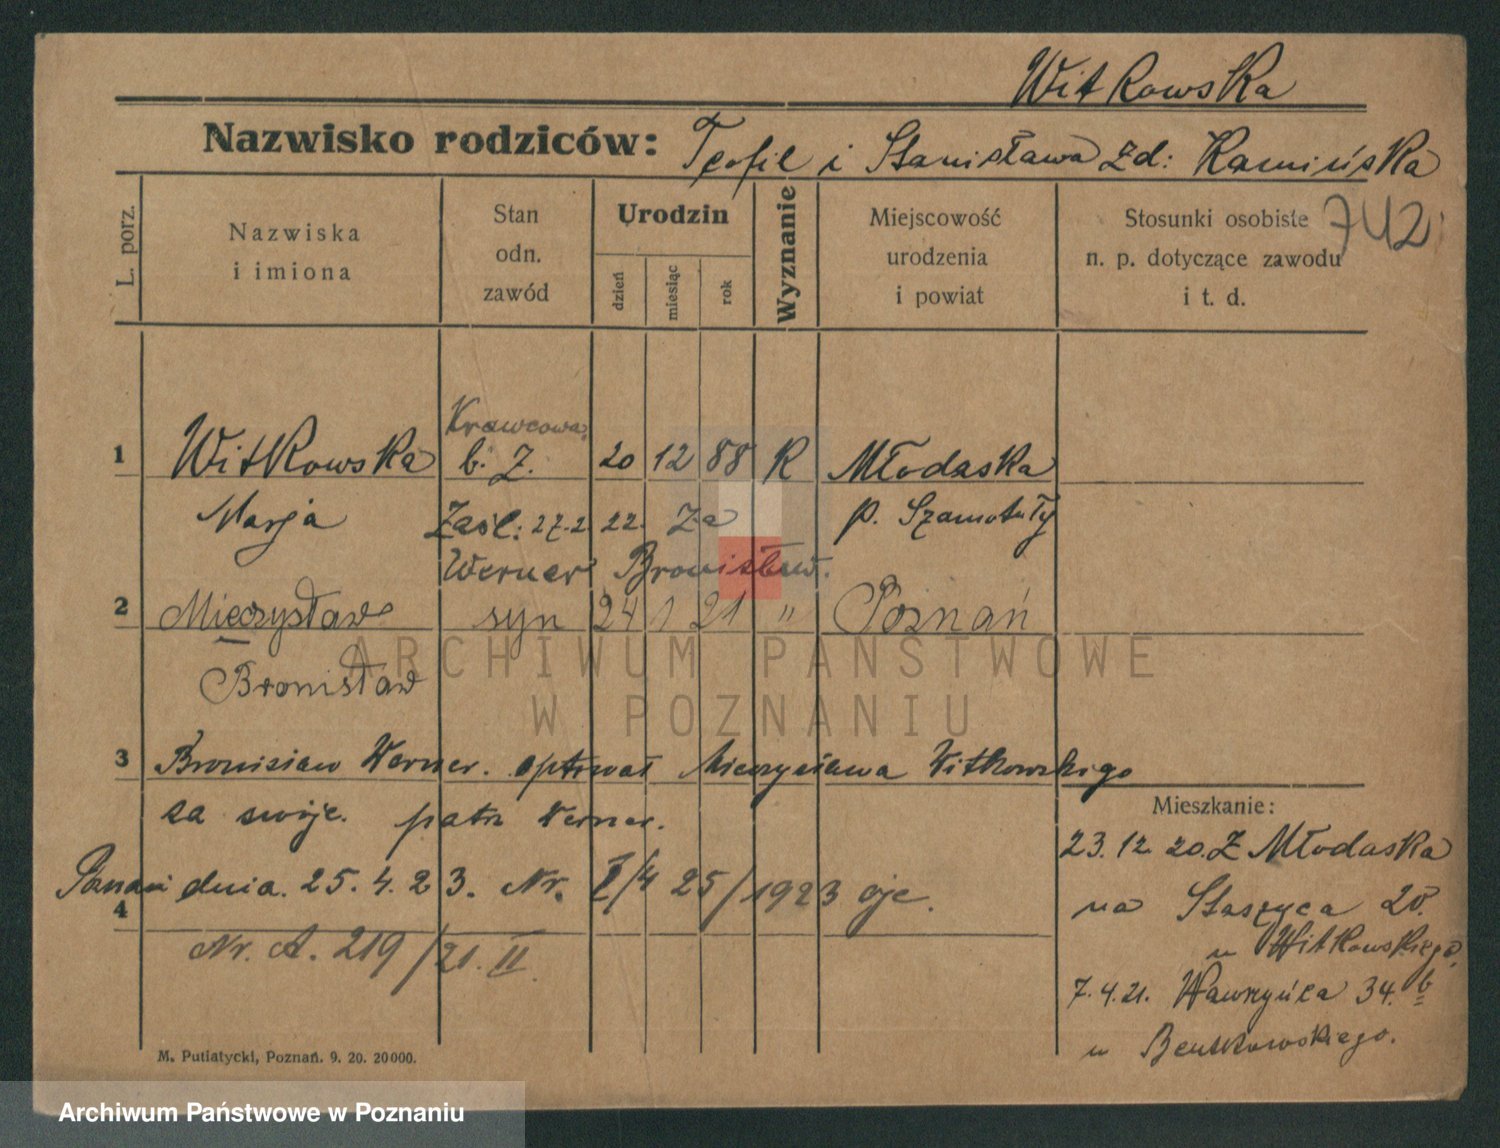 Witkowska
Nazwisko rodziców: Teofil i Stanisława zd: Kamińska
742
L. porz.
Nazwiska
i imiona
Stan
odn.
zawód
Urodzin
dzień
miesiąc
rok
Wyznanie
Miejscowość
urodzenia
i powiat
Stosunki osobiste
n. p. dotyczące zawodu
i t. d.
Krawcowa
1 Witkowska b. Z. 20 12 88 R Młodaska
Marja Zaśl: 27.2 22. Za p. Szamotuły
Werner Bronisław.
2 Mieczysław syn 24 1 21 " Poznań
Bronisław
3 Bronisław Werner. Mieczysława Witkowskiego
za swoje. patrz Werner.
dnia. 25. 4. 23. Nr. I/4 25/1923
4
Nr. A. 219/21. II
Mieszkanie:
23.12 20. Z Młodaska
na Staszyca 20.
u Witkowskiego.
7.4.21. Wawrzyńca 34. b
u
M. Putiatycki, Poznań. 9. 20. 20000.
ARCHIWUM PAŃSTWOWE
W POZNANIU
Archiwum Państwowe w Poznaniu